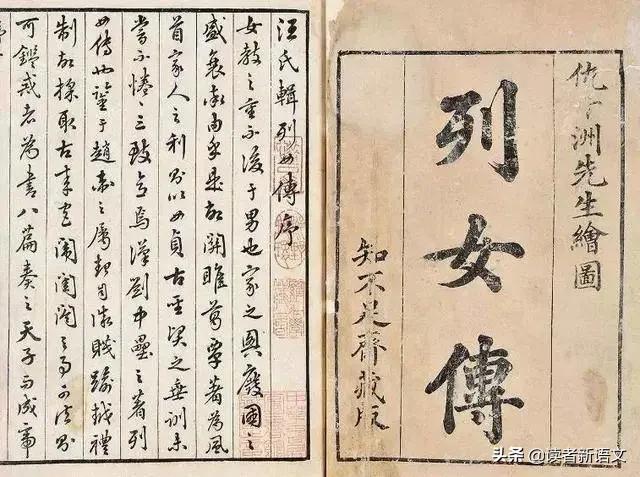 仇十洲先生繪圖
列女傳
知不足齋藏版
汪氏輯列女傳序
女教之重不後于男也家之興廢國之
盛衰由乎是故關雎葛覃著為風
首家人之利以女貞古聖賢之垂訓未
嘗不惓惓三致焉漢劉中壘之著列
女傳也鑒于趙之屬自微賤踰越禮
制故採取古來宮閨之事可法
可鑑戒者為書八篇奏之天子成帝
头条 @读者新语文